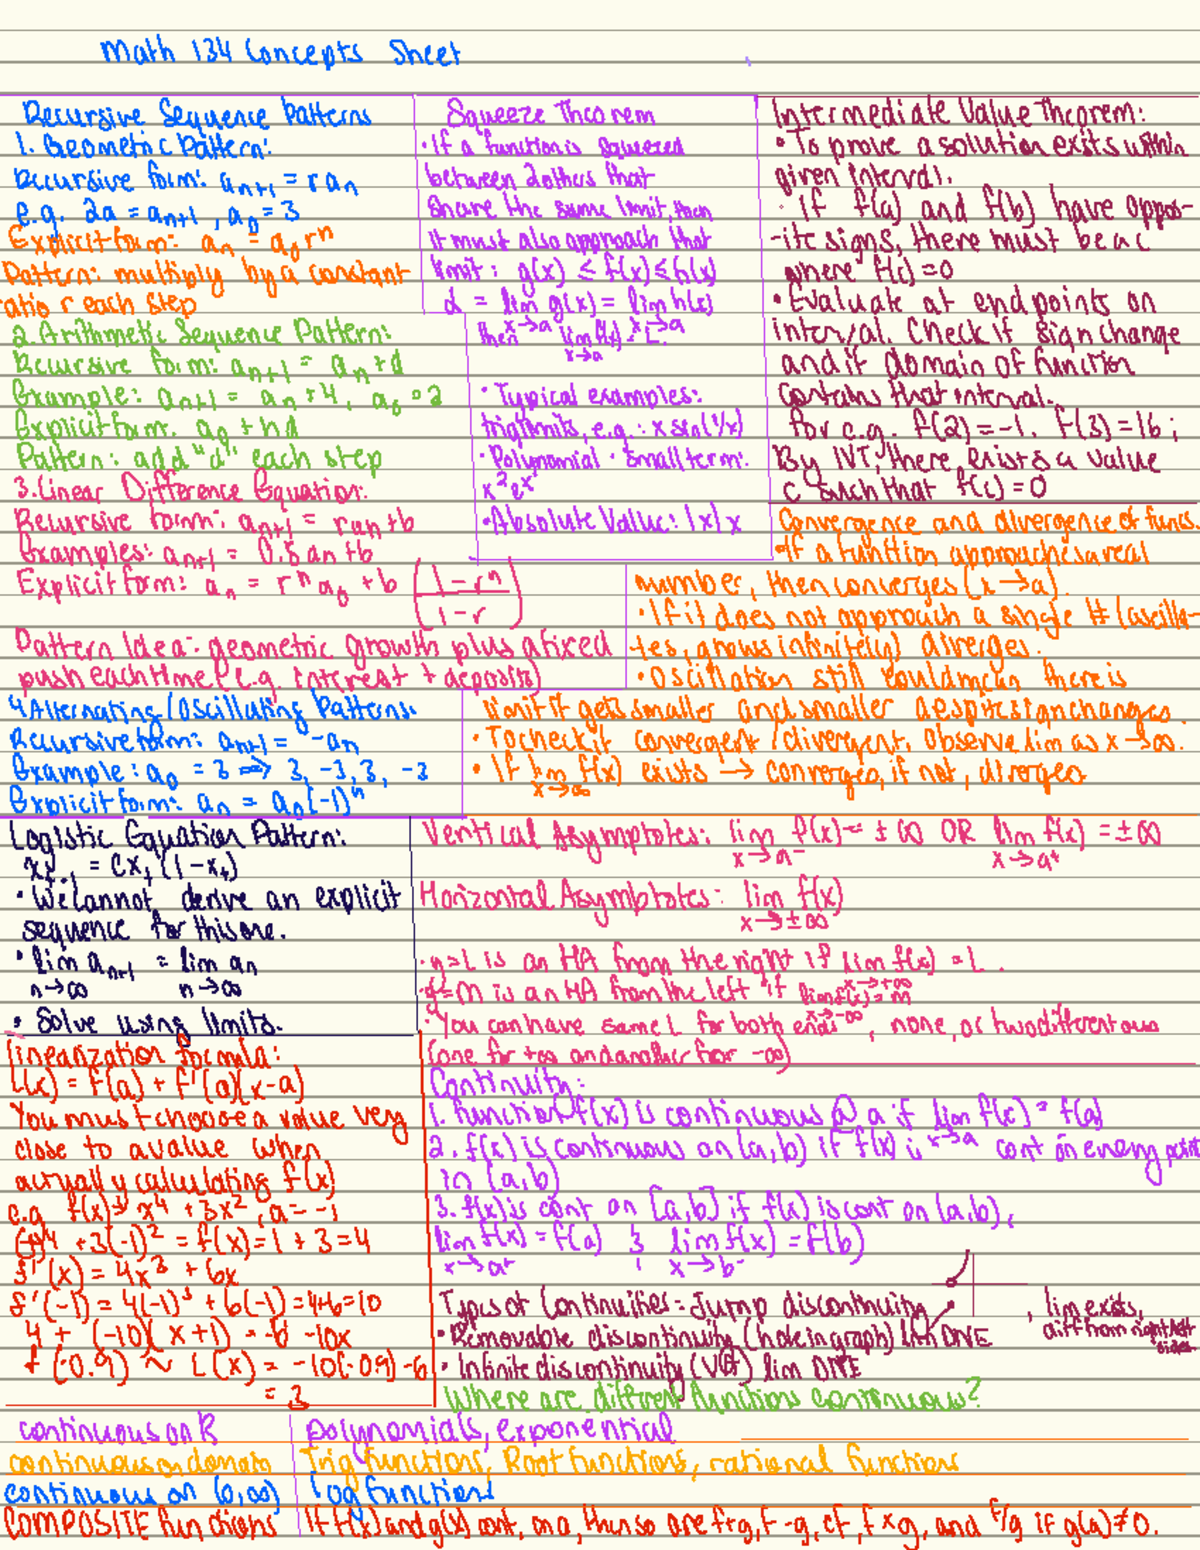 Math 134 Concepts Sheet
Recursive Sequence Patterns
1. Geometric Pattern:
Recursive form: aₙ₊₁ = raₙ
e.g. 2a = aₙ₊₁, a₀ = 3
Explicit form: aₙ = a₀rⁿ
Pattern: multiply by a constant
ratio r each step
2. Arithmetic Sequence Pattern:
Recursive form: aₙ₊₁ = aₙ + d
Example: aₙ₊₁ = aₙ + 4, a₀ = 2
Explicit form: a₀ + nd
Pattern: add "d" each step
3. Linear Difference Equation:
Recursive form: aₙ₊₁ = raₙ + b
Examples: aₙ₊₁ = 0.5aₙ + b
Explicit form: aₙ = rⁿa₀ + b (1-rⁿ / 1-r)
Pattern Idea: geometric growth plus a fixed
push each time (e.g. interest + deposits)
4. Alternating/Oscillating Patterns:
Recursive form: aₙ₊₁ = -aₙ
Example: a₀ = 3 => 3, -3, 3, -3
Explicit form: aₙ = a₀(-1)ⁿ
Squeeze Theorem
• If a function is squeezed
between 2 others that
share the same limit, then
it must also approach that
limit: g(x) ≤ f(x) ≤ h(x)
L = lim g(x) = lim h(x)
x→a x→a
then lim f(x) = L.
x→a
• Typical examples:
trig limits, e.g.: x sin(1/x)
• Polynomial · small term:
x²eˣ
• Absolute Value: |x| x
Intermediate Value Theorem:
• To prove a solution exists within
given interval.
• If f(a) and f(b) have oppos-
-ite signs, there must be a c
where f(c) = 0
• Evaluate at endpoints on
interval. Check if sign change
and if domain of function
contains that interval.
For e.g. f(2) = -1. f(3) = 16;
By IVT, there exists a value
c such that f(c) = 0
Convergence and divergence of funcs.
• If a function approaches a real
number, then converges (x→a).
• If it does not approach a single # (oscilla-
-tes, grows infinitely) diverges.
• Oscillation still could mean there is
limit if gets smaller and smaller despite sign changes.
• To check if convergent/divergent, observe lim as x→∞.
• If lim f(x) exists → converges, if not, diverges
x→∞
Logistic Equation Pattern:
xₜ₊₁ = cxₜ(1-xₜ)
• We cannot derive an explicit
sequence for this one.
• lim aₙ₊₁ = lim aₙ
n→∞ n→∞
• Solve using limits.
Vertical Asymptotes: lim f(x) = ±∞ OR lim f(x) = ±∞
x→a⁻ x→a⁺
Horizontal Asymptotes: lim f(x)
x→±∞
• y=L is an HA from the right if lim f(x) = L.
x→+∞
• y=M is an HA from the left if lim f(x) = M
x→-∞
• You can have same L for both ends, none, or two different ones
(one for +∞ and another for -∞)
Linearization formula:
L(x) = f(a) + f'(a)(x-a)
You must choose a value very
close to a value when
actually calculating f(x)
e.g f(x) = x⁴ + 3x², a = -1
(-1)⁴ + 3(-1)² = f(x) = 1 + 3 = 4
f'(x) = 4x³ + 6x
f'(-1) = 4(-1)³ + 6(-1) = 4+6 = 10
4 + (-10)(x+1) = -6 -10x
f(-0.9) ~ L(x) = -10(-0.9) - 6
= 3
Continuity:
1. Function f(x) is continuous @ a if lim f(x) = f(a)
x→a
2. f(x) is continuous on (a,b) if f(x) is cont on every point
in (a,b)
3. f(x) is cont on [a,b] if f(x) is cont on (a,b),
lim f(x) = f(a) & lim f(x) = f(b)
x→a⁺ x→b⁻
Types of Continuities: Jump discontinuity
, lim exists,
diff from right/left
sides
• Removable discontinuity (hole in graph) lim DNE
• Infinite discontinuity (VA) lim DNE
Where are different functions continuous?
continuous on R polynomials, exponential
continuous on domain Trig functions, Root functions, rational functions
continuous on (0,∞) log functions
COMPOSITE functions If f(x) and g(x) cont. on a, then so are f+g, f-g, cf, f×g, and f/g if g(a)≠0.